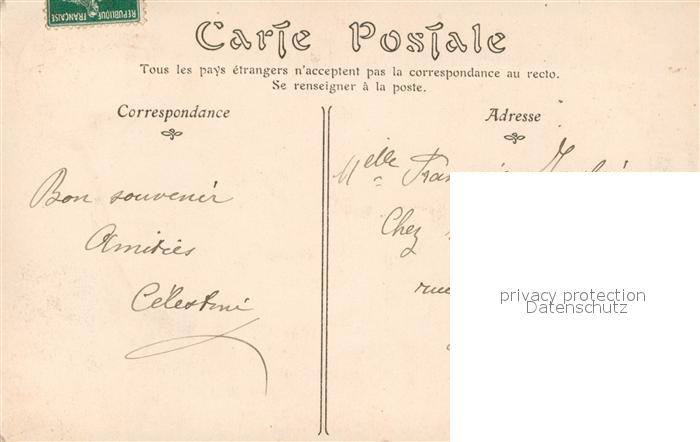 RÉPUBLIQUE FRANÇAISE
Carte Postale
Tous les pays étrangers n'acceptent pas la correspondance au recto.
Se renseigner à la poste.
Correspondance
Adresse
Bon souvenir
Amitiés
Célestine
Melle
Chez
rue
privacy protection
Datenschutz